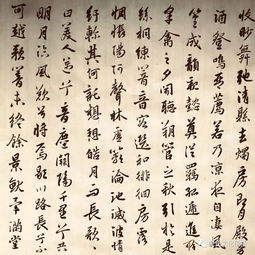 收妙舞弛清縣去燭房即月殿芳
酒登鳴琴薦若乃涼夜自淒風
篁成韻親懿莫從羈孤遞進聆
皋禽之夕聞聽朔管之秋引於是
絲桐練響音容選和徘徊房露
惆悵陽阿聲林虛籟淪池滅波情
紆軫其何託愬皓月而長歌歌
曰美人邁兮音塵闕隔千里兮共
明月臨風歎兮將焉歇川路長兮不
可越歌響未終餘景就畢滿堂